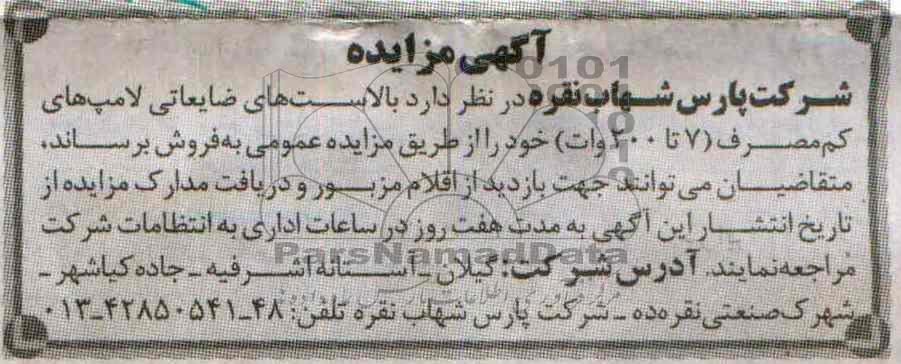 آگهی مزایده
شرکت پارس شهاب نقره در نظر دارد بالاست‌های ضایعاتی لامپ‌های
کم‌مصرف (۷ تا ۲۰۰ وات) خود را از طریق مزایده عمومی به‌فروش برساند،
متقاضیان می‌توانند جهت بازدید از اقلام مزبور و دریافت مدارک مزایده از
تاریخ انتشار این آگهی به مدت هفت روز در ساعات اداری به انتظامات شرکت
مراجعه‌نمایند. آدرس شرکت: گیلان ـ آستانه اشرفیه ـ جاده کیاشهر ـ
شهرک صنعتی نقره‌ده ـ شرکت پارس شهاب نقره تلفن: ۴۸ـ۴۲۸۵۰۵۴۱ـ۰۱۳
ParsNamadData